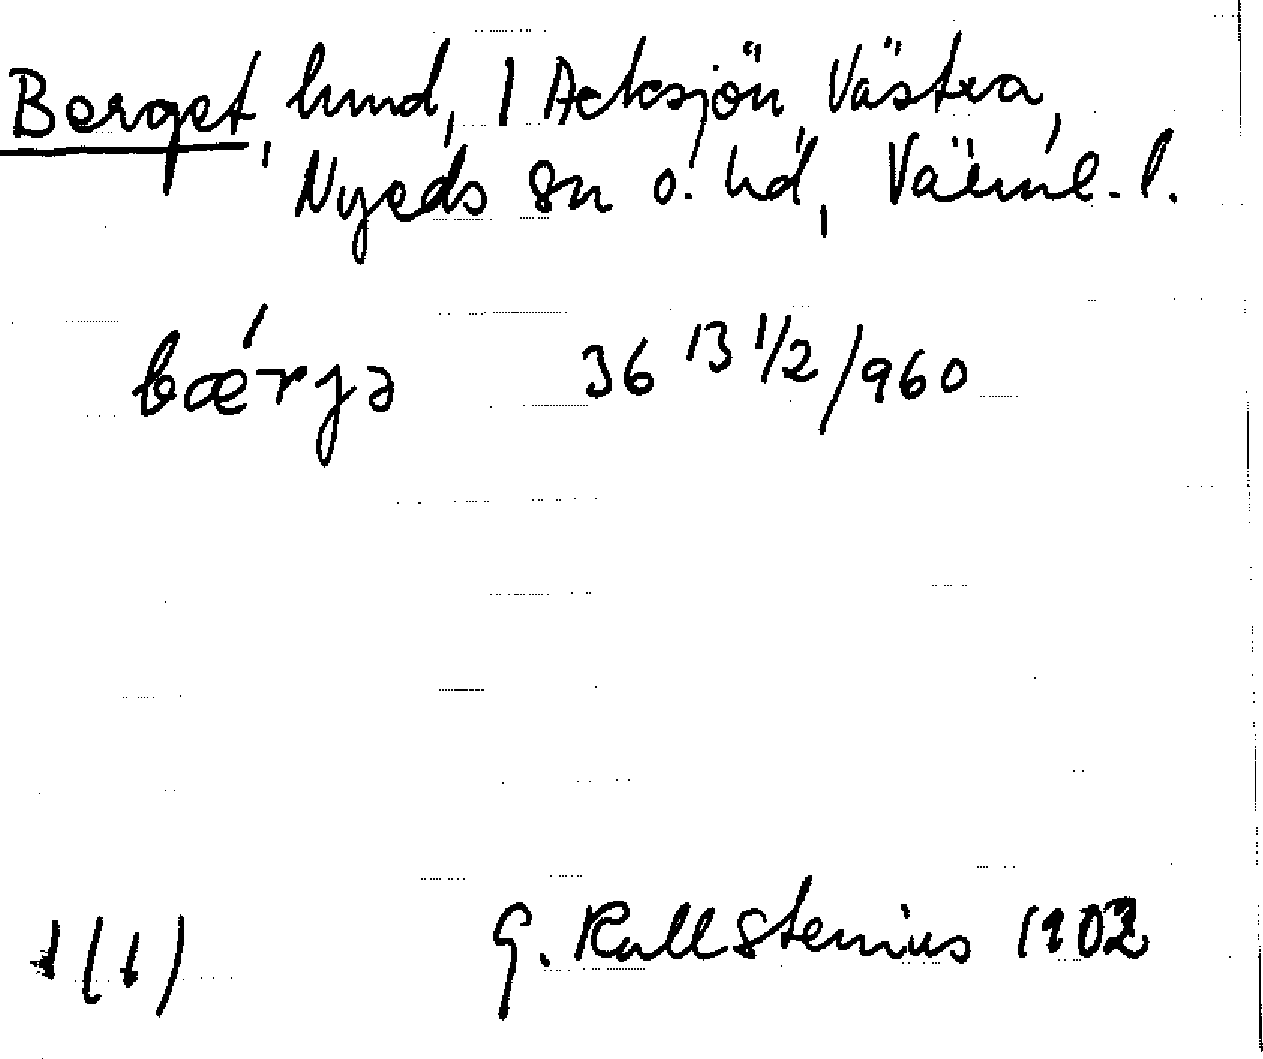 Berget, hmd, 1 Acksjön Västra,
Nyeds sn o. hd, Värml. l.
bǽrjə 36 13 1/2/960
1(1) G. Kallstenius 1902